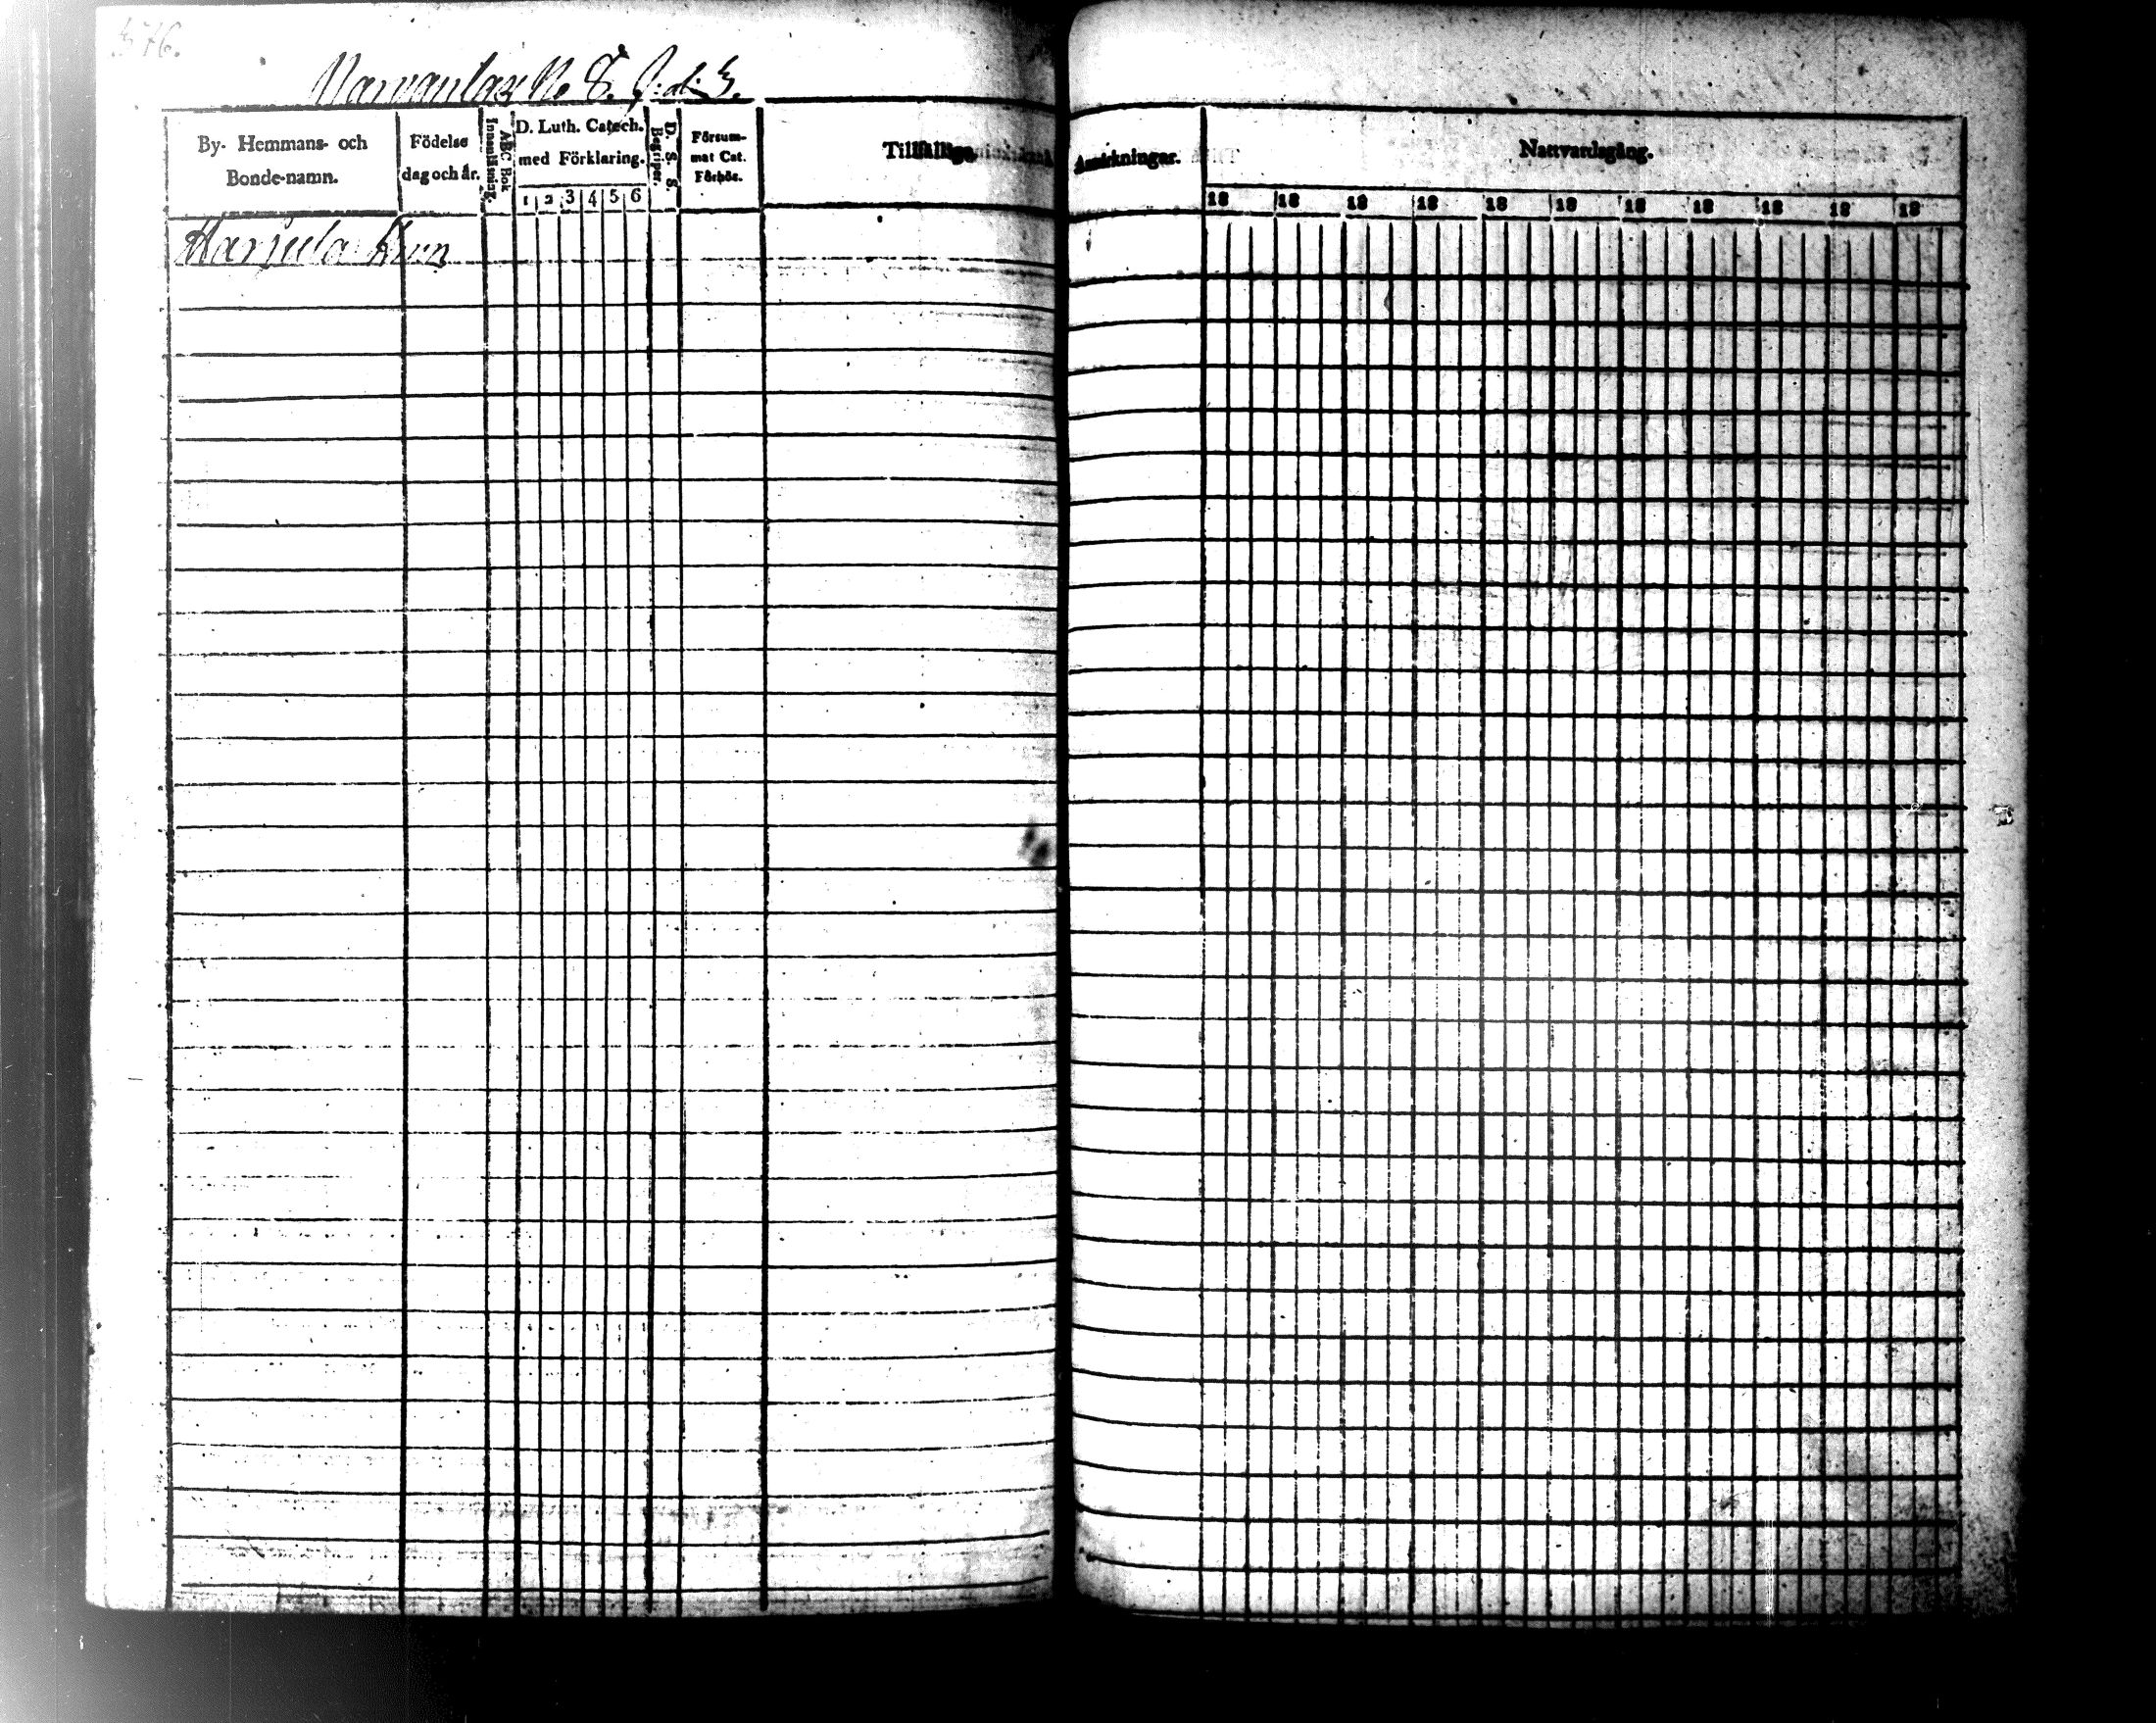 376.
No 8.
By- Hemmans- och Bonde-namn.
Födelse dag och år.
Innanläsning.
ABC Bok
D. Luth. Catech. med Förklaring.
1 2 3 4 5 6
D. S. S. Begriper.
Försum- mat Cat. Förhör.
Tillfälliga
Anmärkningar.
Nattvardsgång.
18 18 18 18 18 18 18 18 18 18 18
Harjula